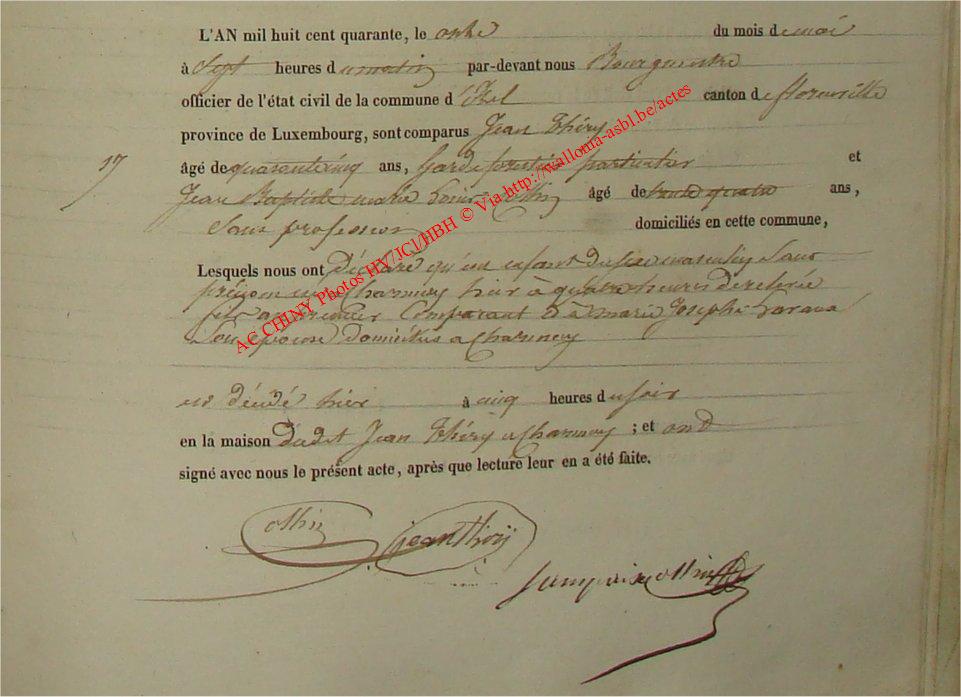 L'AN mil huit cent quarante, le onze du mois de mai
à sept heures du matin par-devant nous Bourgmestre
officier de l'état civil de la commune d'Izel canton de florenville
province de Luxembourg, sont comparus Jean Théry
17 âgé de quarante cinq ans, Garde forestier particulier et
Jean Baptiste marie Louis Ollin âgé de trente quatre ans,
Sans profession domiciliés en cette commune,
Lesquels nous ont Déclaré qu'un enfant du sexe masculin Sans
prénom né à Charmoy hier a quatre heures de relevée
fils au premier Comparant & à marie Josephe
Son épouse Domiciliés a Charmoy
est décédé hier à cinq heures du soir
en la maison dudit Jean Théry a Charmoy ; et ont
signé avec nous le présent acte, après que lecture leur en a été faite.
Ollin jean Théry
AC CHINY Photos HY/JCI/HBH © Via http://walloma-asbl.be/actes